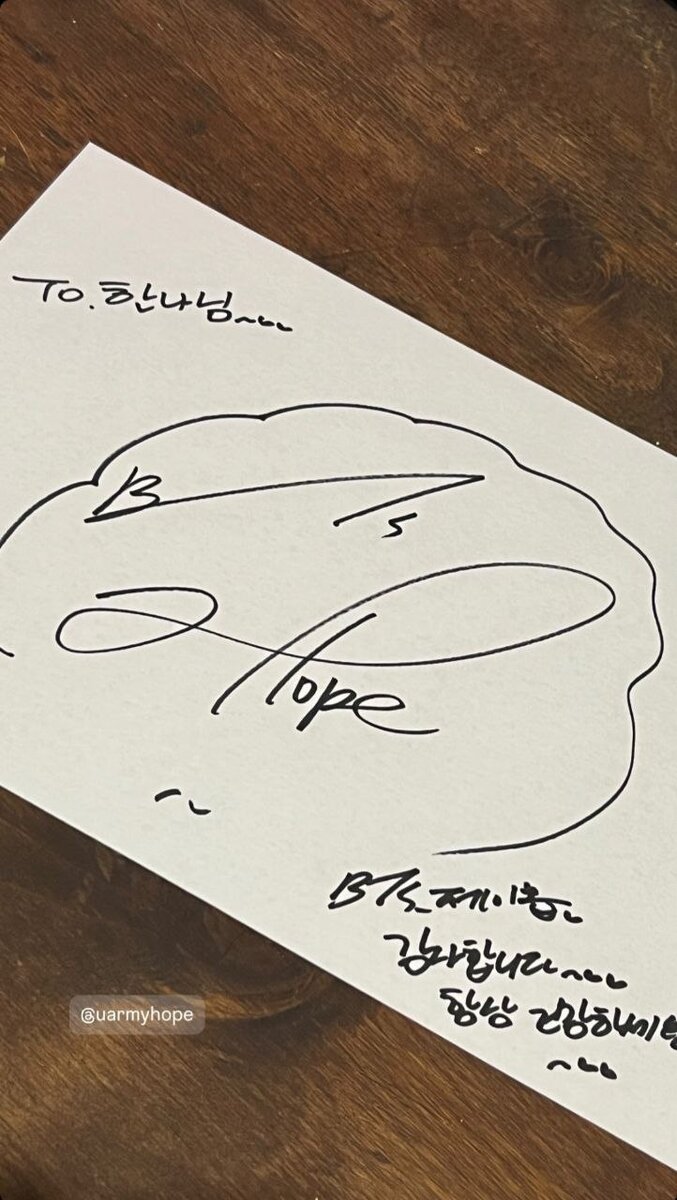 To. 한나님~~~
BTS
j Hope
~
BTS_제이홉~
감사합니다~~~
항상 건강하시
~~~
@uarmyhope